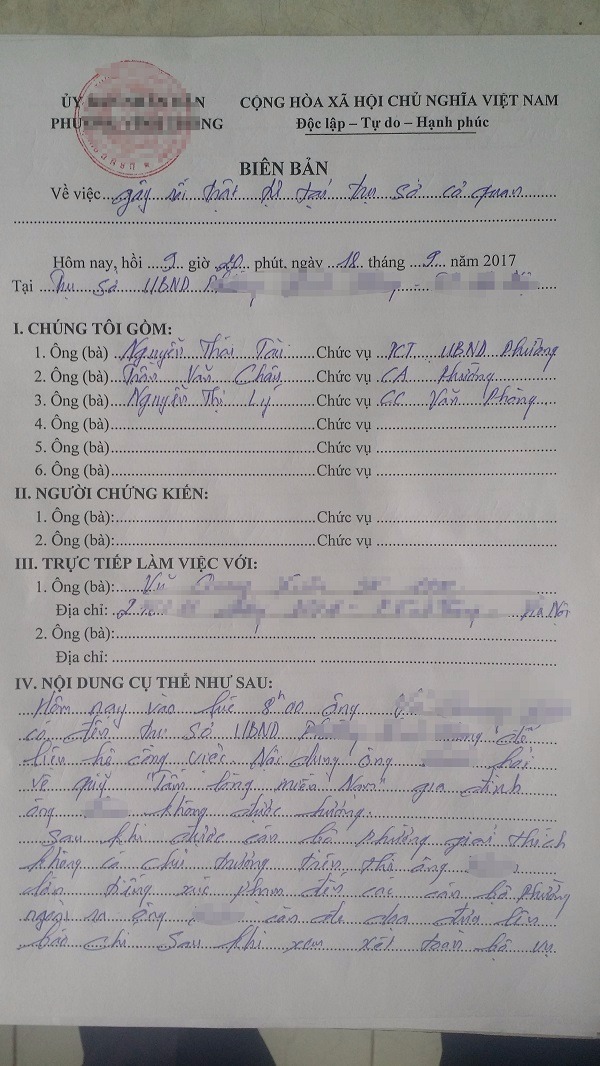 ỦY BAN NHÂN DÂN CỘNG HÒA XÃ HỘI CHỦ NGHĨA VIỆT NAM
PHƯỜNG Độc lập – Tự do – Hạnh phúc
BIÊN BẢN
Về việc gây rối trật tự tại trụ sở cơ quan
Hôm nay, hồi 9 giờ 20 phút, ngày 18 tháng 9 năm 2017
Tại Trụ sở UBND
I. CHÚNG TÔI GỒM:
1. Ông (bà) Nguyễn Thái Tài Chức vụ PCT UBND Phường
2. Ông (bà) Trần Văn Chức vụ CA Phường
3. Ông (bà) Nguyễn Thị Ly Chức vụ CC Văn Phòng
4. Ông (bà) Chức vụ
5. Ông (bà) Chức vụ
6. Ông (bà) Chức vụ
II. NGƯỜI CHỨNG KIẾN:
1. Ông (bà): Chức vụ
2. Ông (bà): Chức vụ
III. TRỰC TIẾP LÀM VIỆC VỚI:
1. Ông (bà): Vũ
Địa chỉ: Hà Nội
2. Ông (bà):
Địa chỉ:
IV. NỘI DUNG CỤ THỂ NHƯ SAU:
Hôm nay vào lúc 8h00 ông
có đến trụ sở UBND để
liên hệ công việc. Nội dung ông hỏi
về quỹ "Tấm lòng miền Nam" gia đình
ông không được hưởng.
Sau khi được cán bộ phường giải thích
không có chủ trương trên, thì ông
lớn tiếng xúc phạm đến các cán bộ Phường
ngoài ra ông còn đe dọa đưa lên
báo chí. Sau khi xem xét toàn bộ vụ